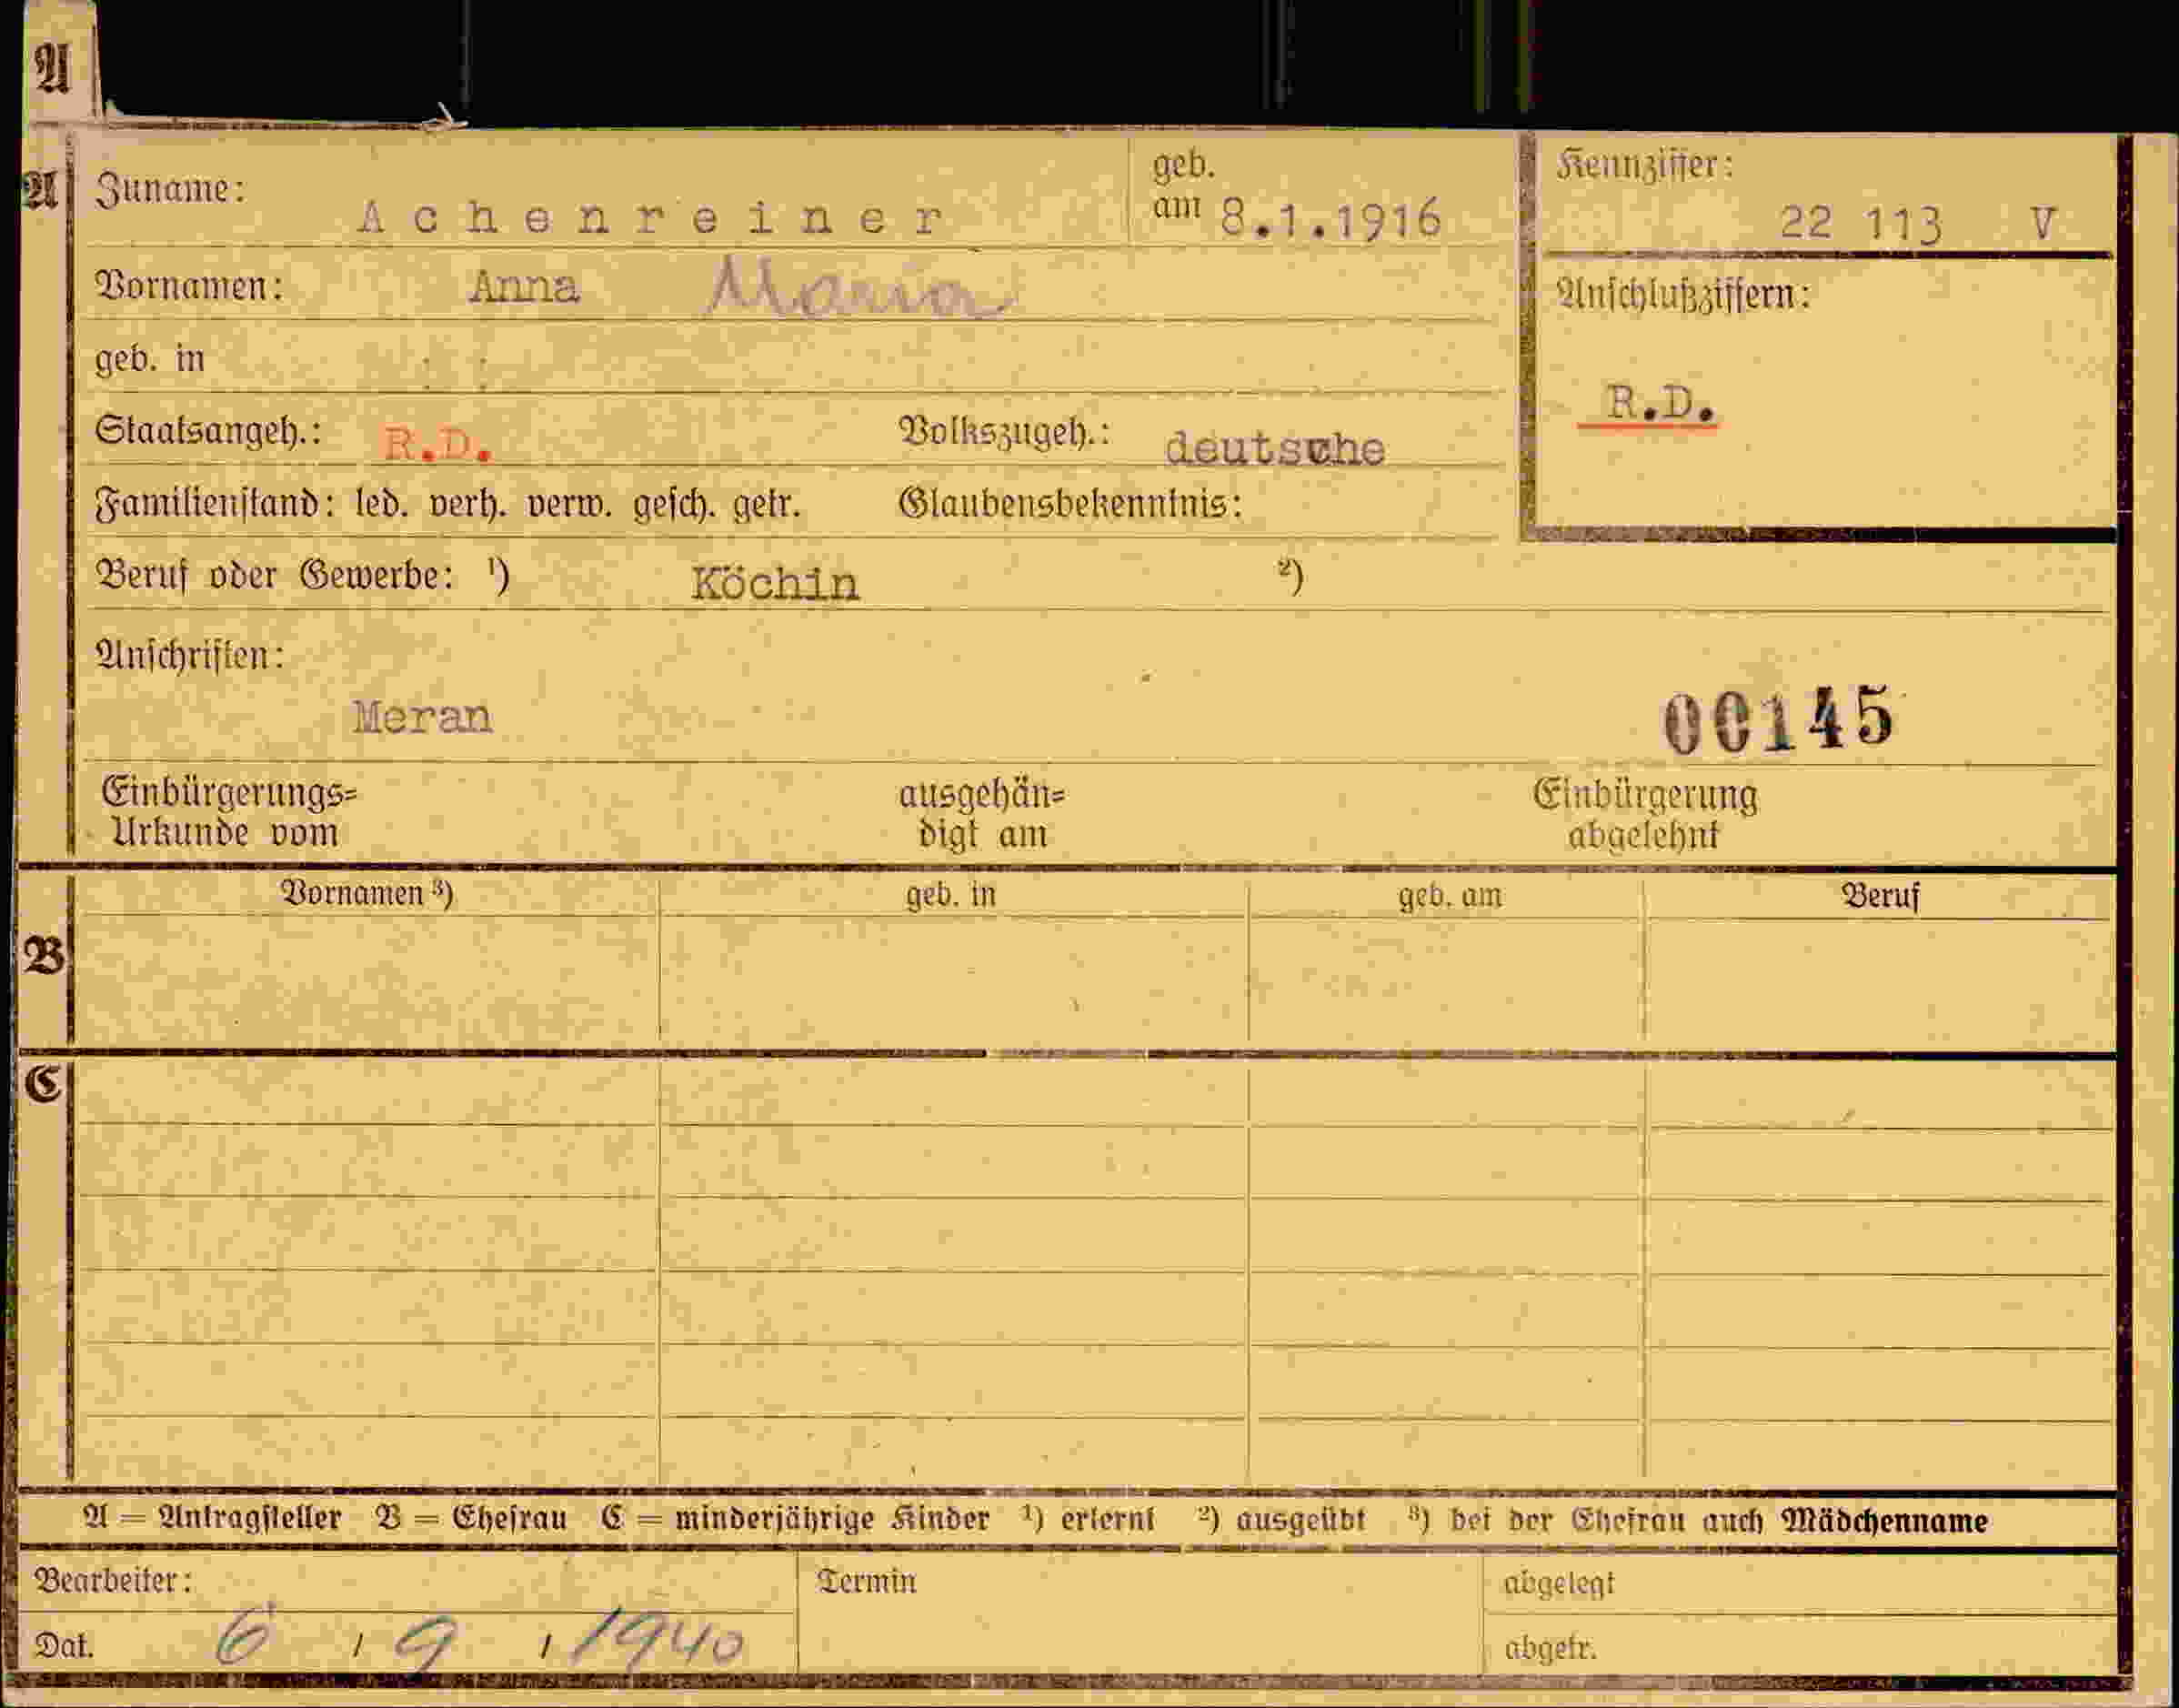 A
A Zuname: Achenreiner geb. am 8.1.1916 Kennziffer: 22 113 V
Vornamen: Anna Maria Anschlußziffern:
geb. in
R.D.
Staatsangeh.: R.D. Volkszugeh.: deutsche
Familienstand: led. verh. verw. gesch. getr. Glaubensbekenntnis:
Beruf oder Gewerbe: ¹) Köchin ²)
Anschriften:
Meran 00145
Einbürgerungs= ausgehän= Einbürgerung
Urkunde vom digt am abgelehnt
Vornamen ³) geb. in geb. am Beruf
B
C
A = Antragsteller B = Ehefrau C = minderjährige Kinder ¹) erlernt ²) ausgeübt ³) bei der Ehefrau auch Mädchenname
Bearbeiter: Termin abgelegt
Dat. 6 / 9 / 1940 abgetr.